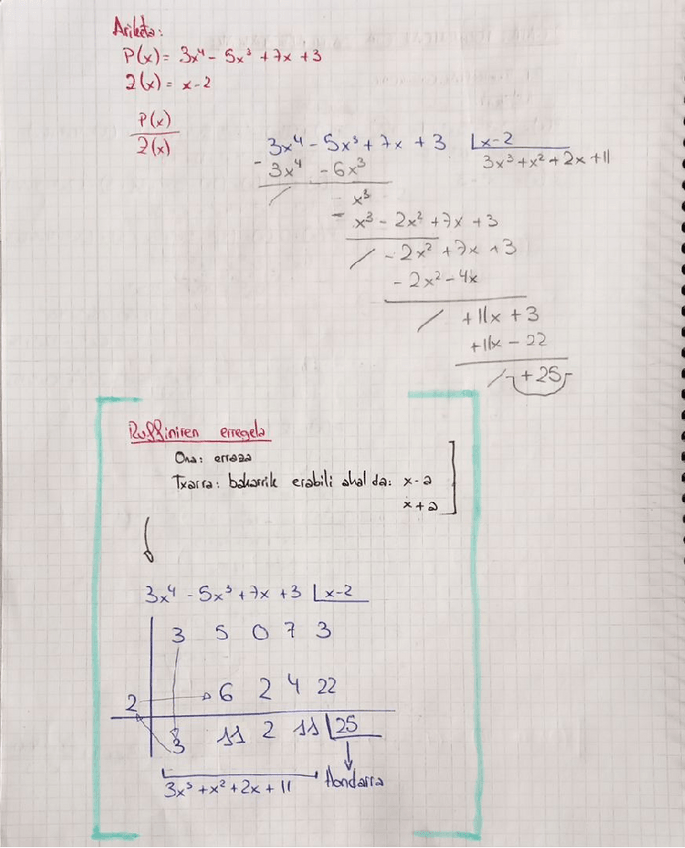 Ariketa:
P(x) = 3x⁴ - 5x³ + 7x + 3
2(x) = x-2
P(x)
2(x)
3x⁴ - 5x³ + 7x + 3 x-2
- 3x⁴ - 6x³ 3x³ + x² + 2x + 11
x³
- x³ - 2x² + 7x + 3
- 2x² + 7x + 3
- 2x² - 4x
+11x + 3
+11x - 22
+25
Ruffiniren erregela
Ona: erraza
Txarra: bakarrik erabili ahal da: x-a
x+a
3x⁴ - 5x³ + 7x + 3 x-2
3 5 0 7 3
2 6 2 4 22
3 11 2 11 25
3x³ + x² + 2x + 11 Hondarra